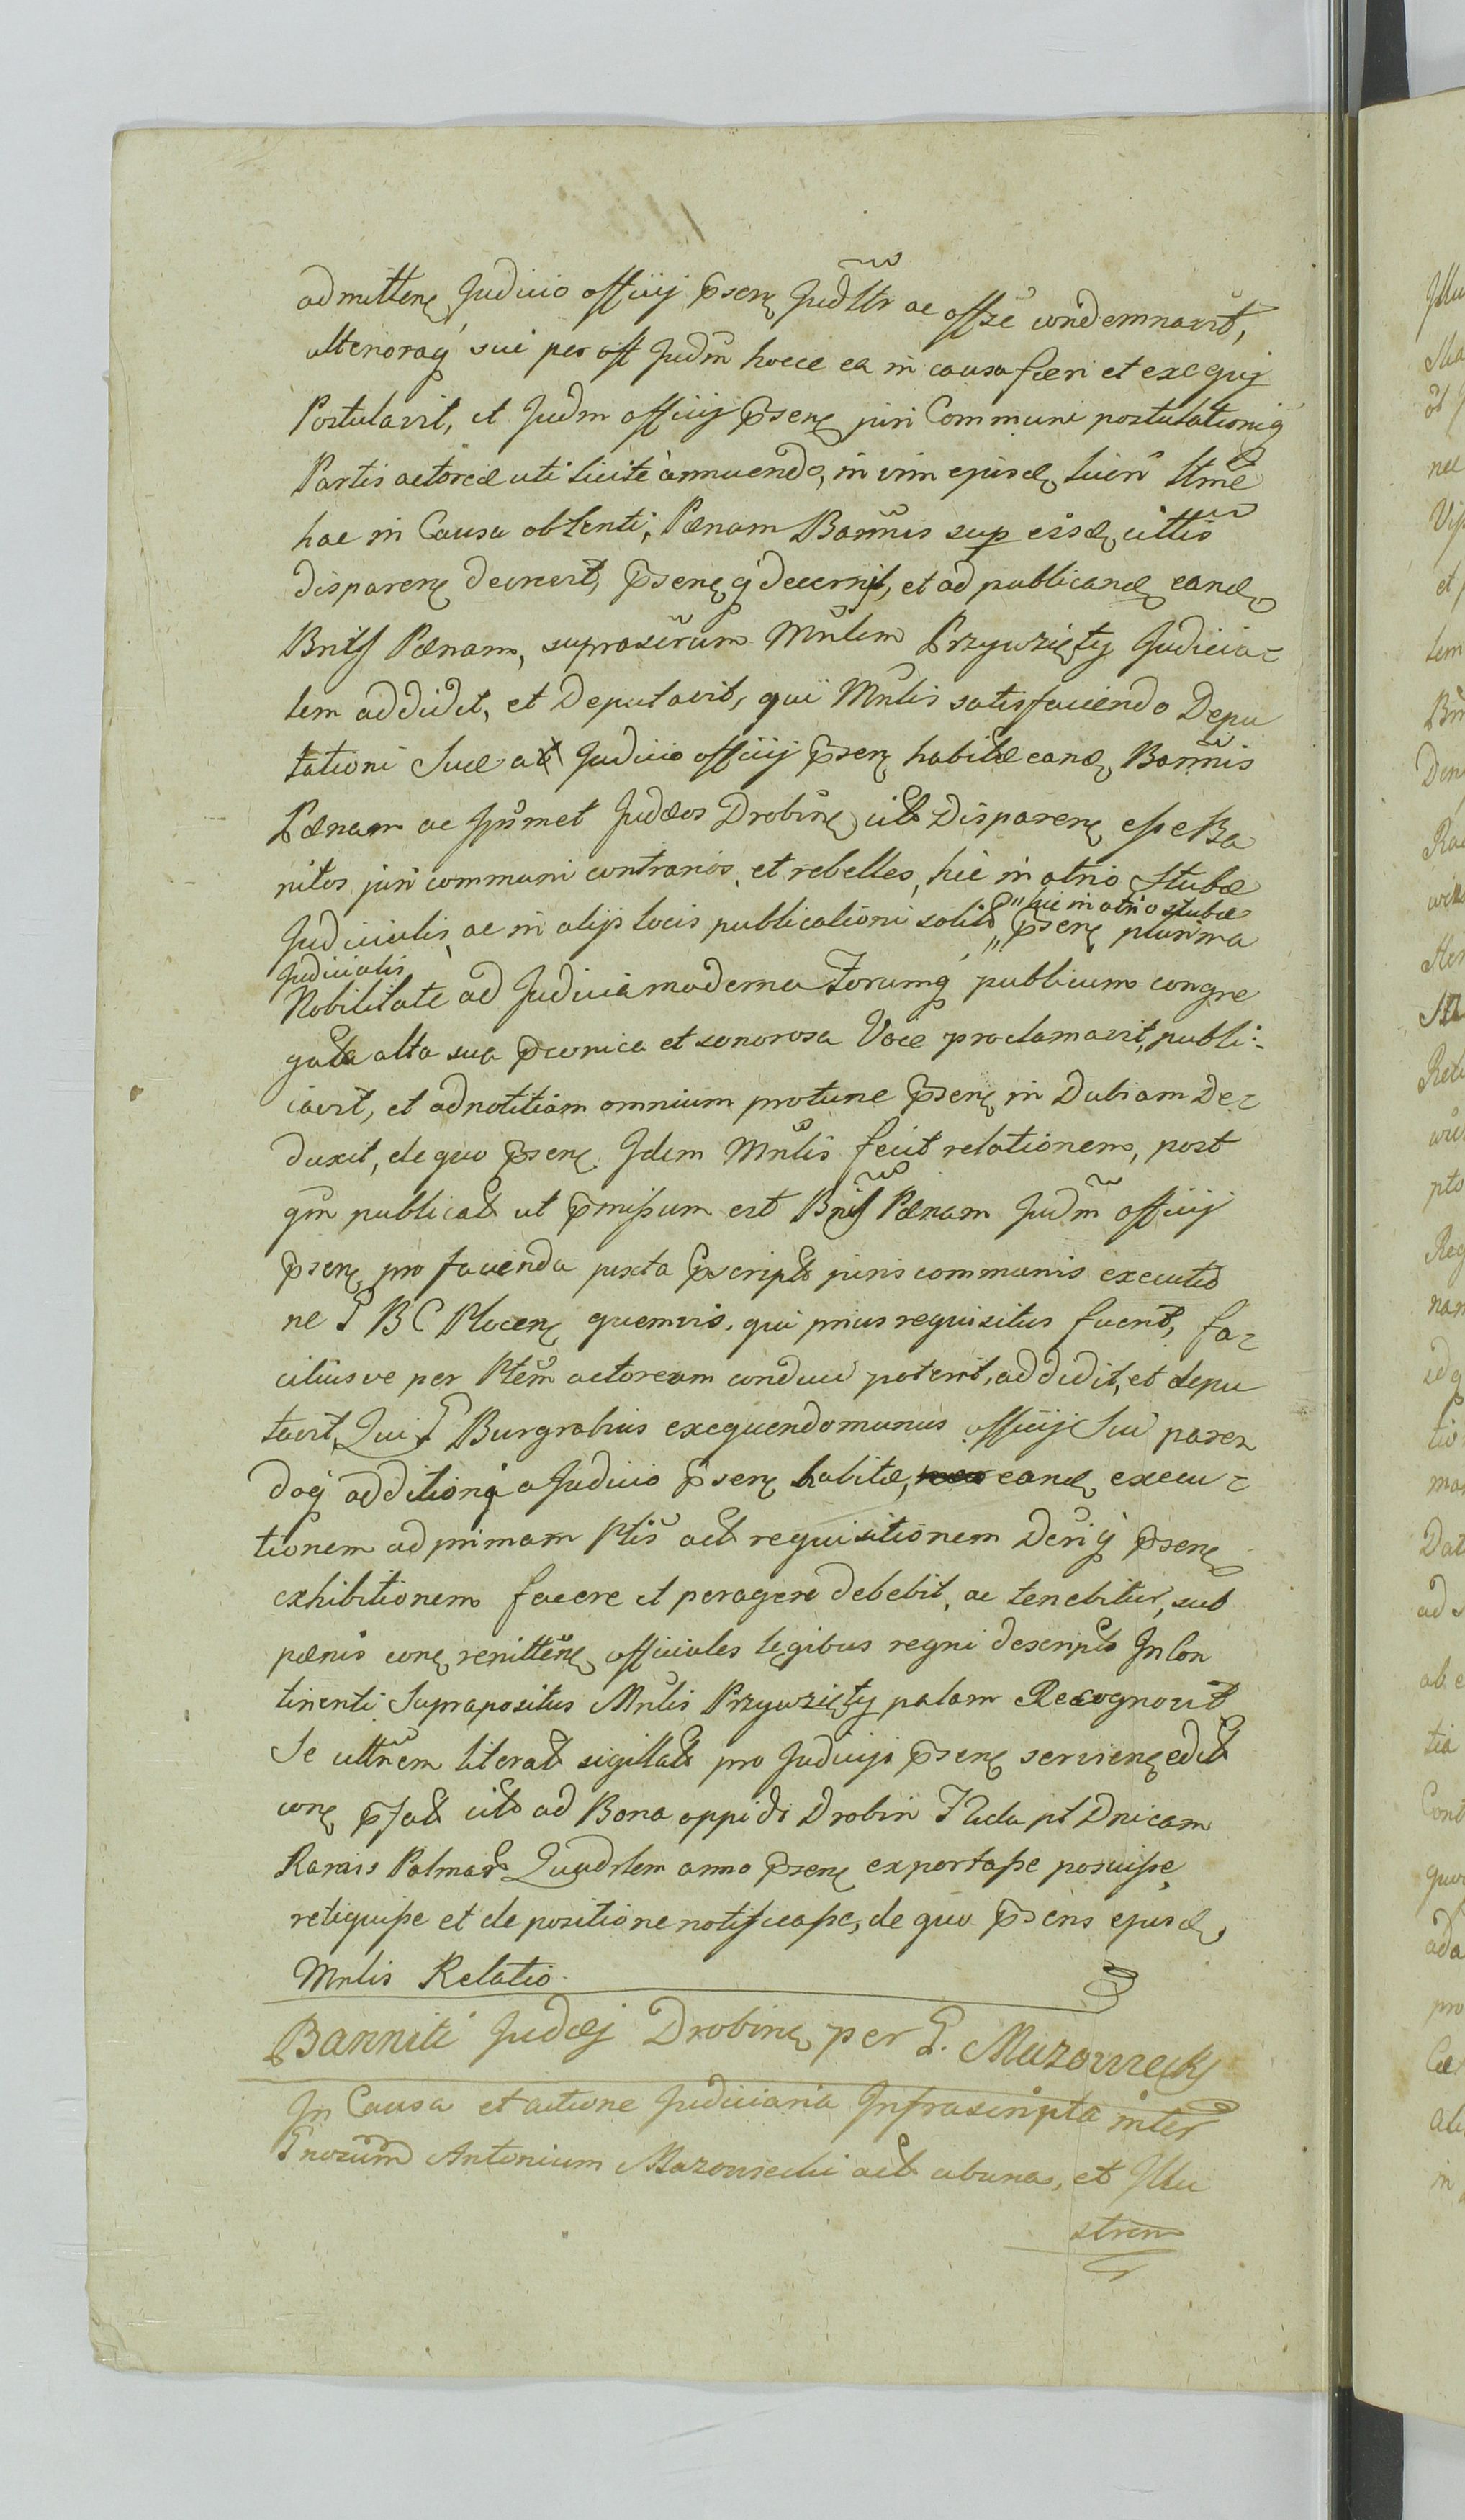 admitten Judicio officij psen Judltr ac offse condemnavit,
ulterioraq sui per off Judm hocce ea in causa fieri et exequi
Postulavit, et Judm officij psen juri Communi postulationiq
Partis actoreæ uti licite annuendo, in vim ejusd lucri
hac in Causa obtenti, Pænam Bannis sup eisd cittis
disparen decrevit, psenq decernit, et ad publicand eand
Bnis Pænam, suprascrium Mnlem Przywzięty Judicia=
lem addidit, et Deputavit, qui Mnlis satisfaciendo Depu
tationi Suæ a Judicio officij psen habitæ eand Bannis
Pænam ac Ipsmet Judæos Drobin cit Disparen esse Ba
nitos juri communi contrarios, et rebelles, hic in atrio Stubæ
Judicialis ac in alijs locis publicationi solit psen plurima
hic in atrio stubæ
Judicialis
Nobilitate ad Judicia moderna Forumq publicum congre
gata alta sua pconica et sonorosa Voce proclamavit, publi=
cavit, et ad notitiam omnium protunc psen in Dubiam De=
duxit, de quo psen Idem Mnlis fecit relationem, post
qm publicat ut pmissum est Bnis Pænam Judm officij
psen pro facienda juxta pscript juris communis executio
ne G B C Plocen quemvis, qui prius requisitus fuerit, fa=
ciliusve per Ptem actoream conduci poterit, addidit, et depu
tavit, Qui G Burgrabius exequendo munus officij Sui paren
doq additioni a Judicio psen habitæ, eand execu=
tionem ad primam Ptis act requisitionem Deriq psen
exhibitionem facere et peragere debebit, ac tenebitur, sub
pænis con renitten officiales legibus regni descript In Con
tinenti Suprapositus Mnlis Przywzięty palam Recognovit
Se literat sigillat pro Judicijs psen servien edit
con pfat cit ad Bona oppidi Drobin F 2da pt Dnicam
Ramis Palmar Quadrlem anno psen exportasse posuisse,
reliquisse et de positione notificasse, de quo psens ejusd
Mnlis Relatio
Banniti Judæj Drobin per G. Mazowiecky
In Causa et actione Judiciaria Infrascripta inter
Gnosum Antonium Mazowiecki act ab una, et Illu
strem